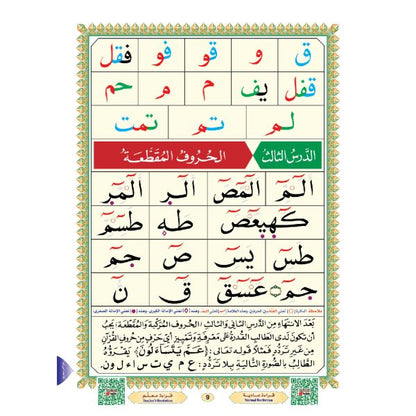 ق و قو فو فقل
قفل يف م م حم
لم تم تمت
الدَّرْسُ الثَّالِثُ الحُرُوفُ المُقَطَّعَةُ
الٓمٓ الٓمٓصٓ الٓر الٓمٓر
كٓهيعٓصٓ طه طسٓمٓ
طسٓ يسٓ صٓ حمٓ
حمٓ عٓسٓقٓ قٓ نٓ
بَعْدَ الانْتِهَاءِ مِنَ الدَّرْسِ الثَّانِي وَالثَّالِثِ (الحُرُوفُ المُرَكَّبَةُ وَالحُرُوفُ المُقَطَّعَةُ) يَجِبُ
أَنْ تَكُونَ لَدَى الطَّالِبِ القُدْرَةُ عَلَى مَعْرِفَةِ وَتَمْيِيزِ أَيِّ حَرْفٍ مِنْ حُرُوفِ القُرْآنِ
مِنْ غَيْرِ تَرَدُّدٍ فَمَثَلًا قَوْلُهُ تَعَالَى: ﴿عَمَّ يَتَسَاءَلُونَ﴾ يَقْرَؤُهُ
الطَّالِبُ بِالصُّورَةِ التَّالِيَةِ بِلَا تَرَدُّدٍ: ع م ي ت س ا ء ل و ن.
قراءة معلم Teacher's Recitation 9 قراءة عادية Normal Recitation